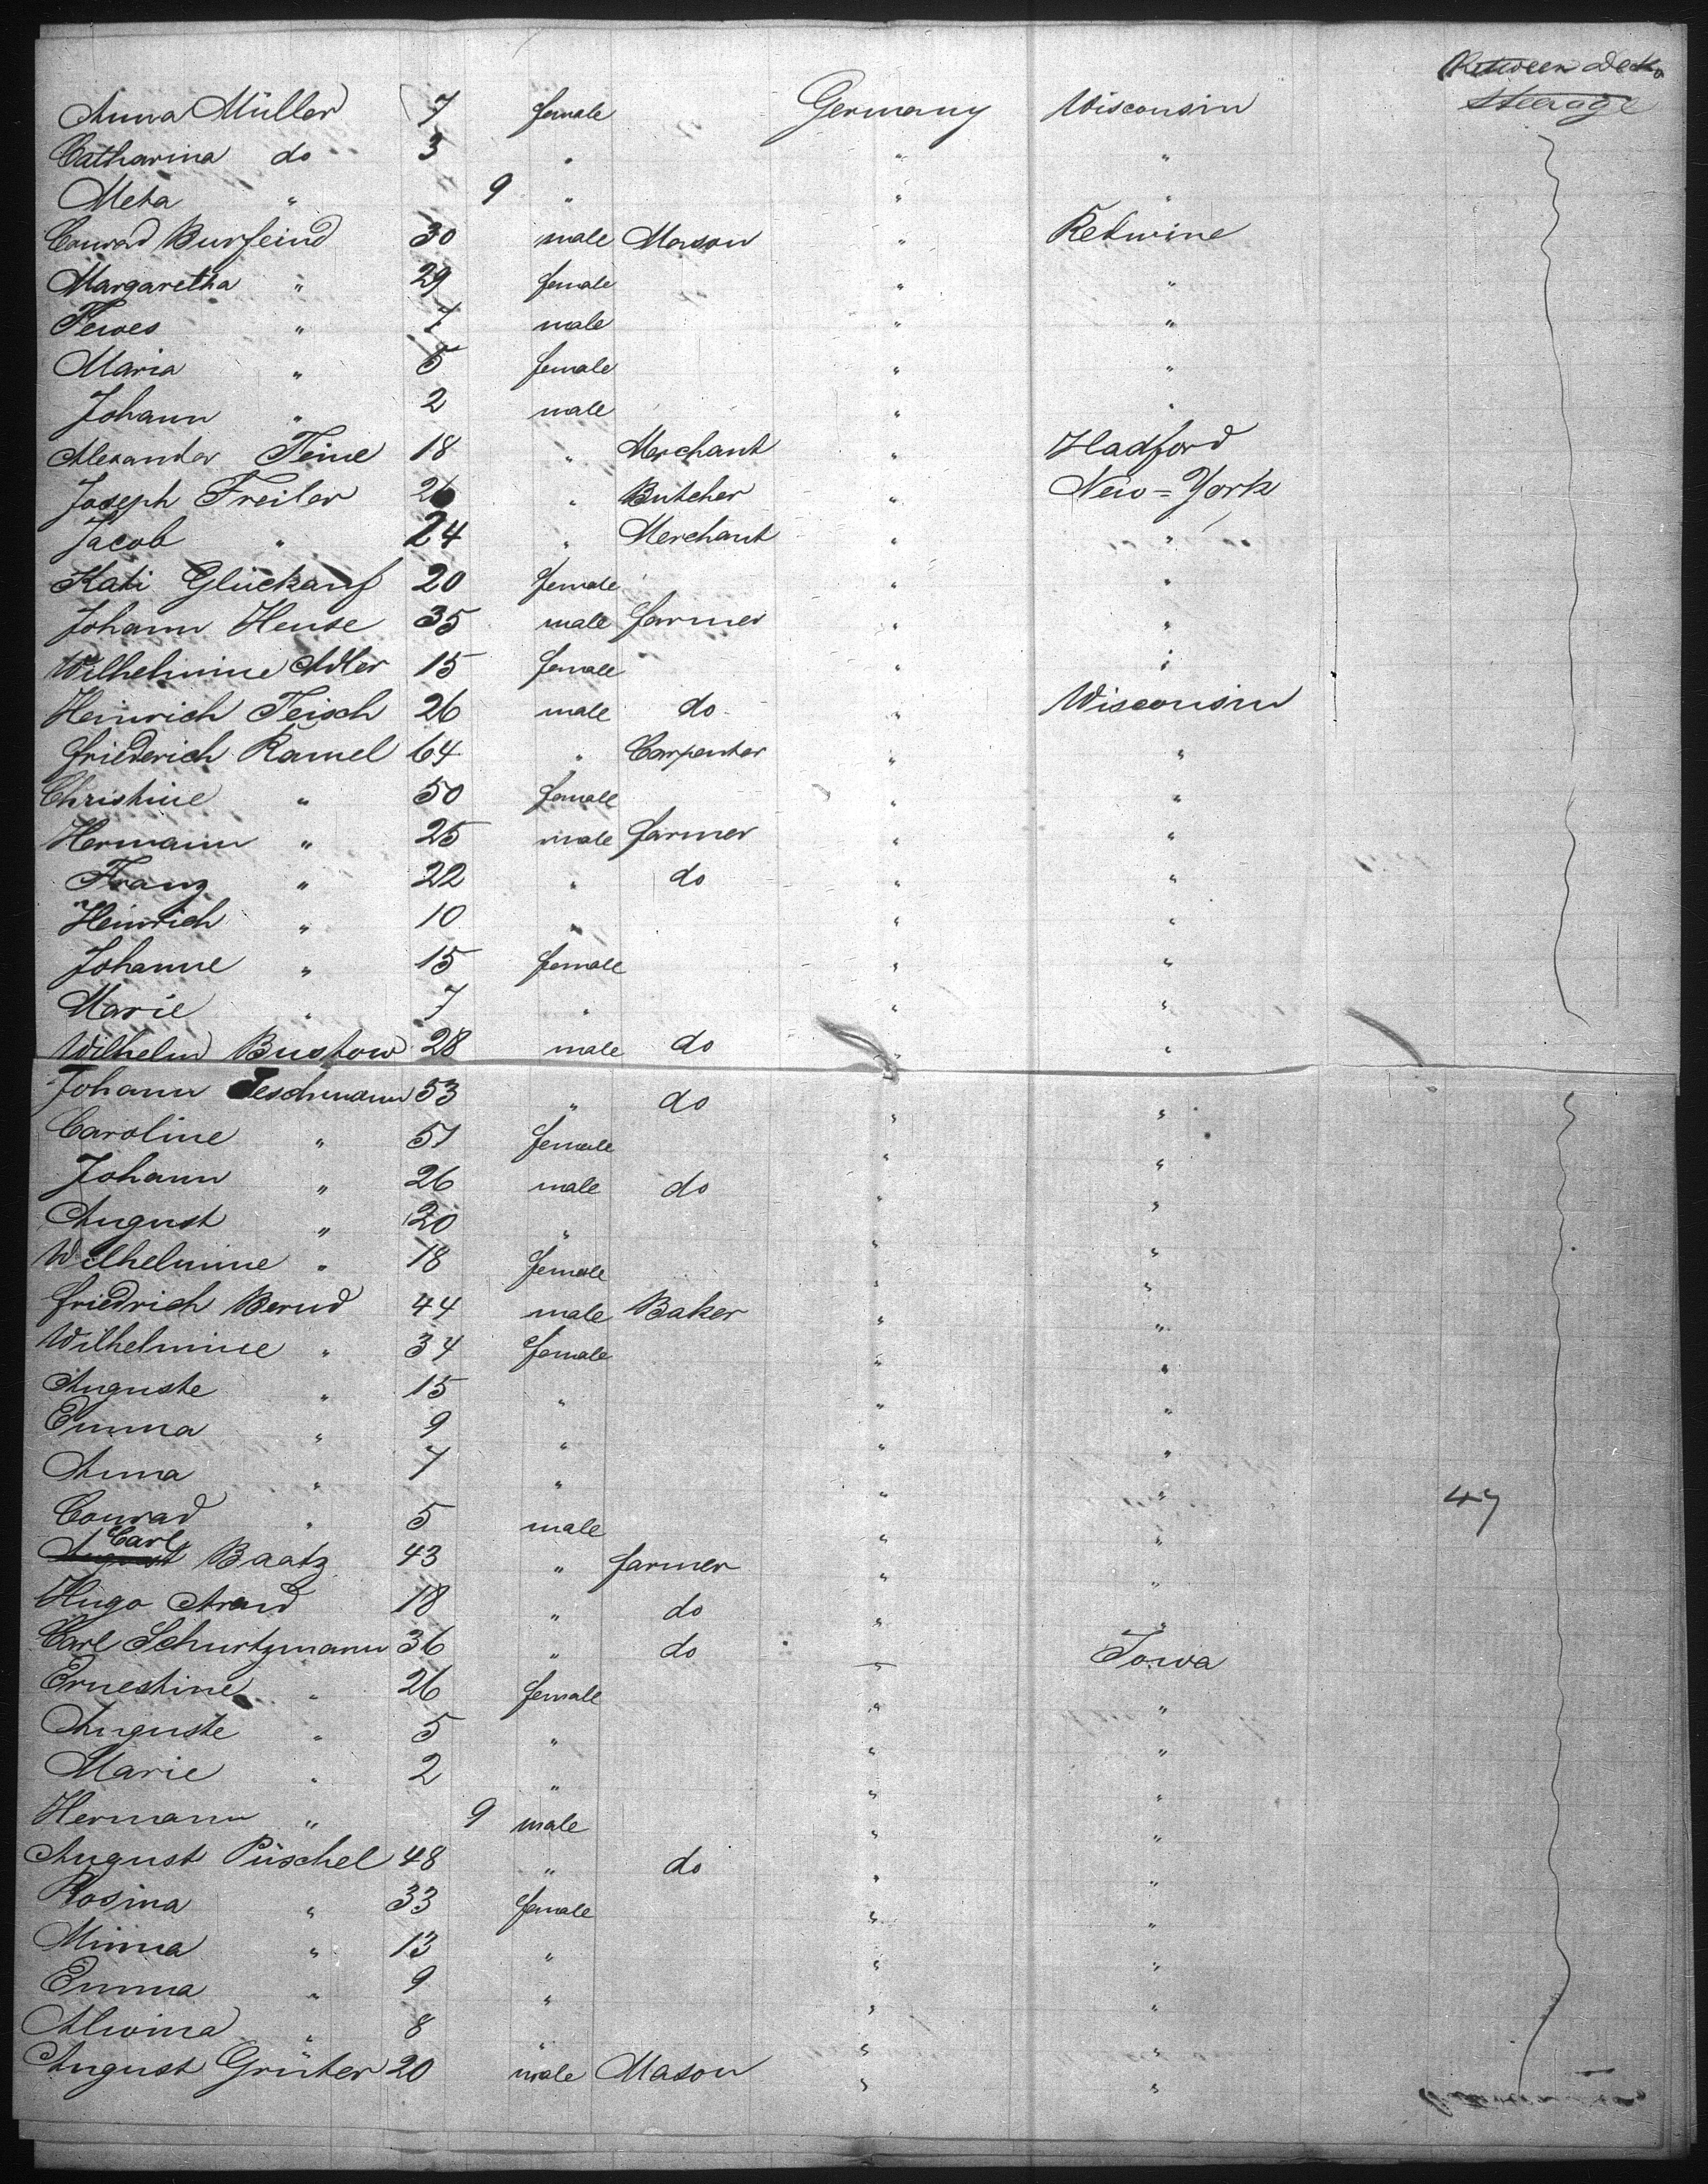 Between Decks
Anna Müller 7 female Germany Wisconsin Steerage
Catharina do 3 " " "
Meta " 9 " " "
Conrad Burfeind 30 male Mason " Redwine
Margaretha " 29 female " "
Tewes " 7 male " "
Maria " 5 female " "
Johann " 2 male " "
Alexander Feine 18 " Merchant " Hadford
Joseph Freiler 26 " Butcher " New=York
Jacob " 24 " Merchant " "
Kati Glückauf 20 female " "
Johann Hense 35 male farmer " "
Wilhelmine Adler 15 female " "
Heinrich Teisch 26 male do " Wisconsin
Friederich Ramel 64 " Carpenter " "
Christine " 50 female " "
Hermann " 25 male farmer " "
Franz " 22 " do " "
Heinrich " 10 " " "
Johanne " 15 female " "
Marie " 7 " " "
Wilhelm Bustow 28 male do " "
Johann Teschmann 53 " do " "
Caroline " 51 female " "
Johann " 26 male do " "
August " 20 " " "
Wilhelmine " 18 female " "
Friedrich Bernd 44 male Baker " "
Wilhelmine " 34 female " "
Auguste " 15 " " "
Emma " 9 " " "
Anna " 7 " " " 47
Conrad " 5 male " "
Carl
August Baatz 43 " farmer " "
Hugo Arend 18 " do " "
Carl Schurtzmann 36 " do " Iowa
Ernestine " 26 female " "
Auguste " 5 " " "
Marie " 2 " " "
Hermann " 9 male " "
August Püschel 48 " do " "
Rosina " 33 female " "
Minna " 13 " " "
Emma " 9 " " "
Alwina " 8 " " "
August Grüter 20 male Mason " "